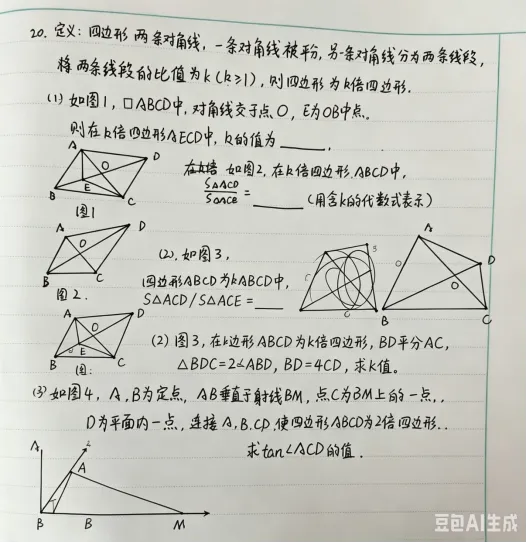 20. 定义: 四边形 两条对角线, 一条对角线被平分, 另一条对角线分为两条线段,
将两条线段的比值为k(k>1), 则四边形为k倍四边形.
(1) 如图1, □ABCD中, 对角线交于点O, E为OB中点.
则在k倍四边形AECD中, k的值为____.
A D O E B C
图1
在k倍 如图2, 在k倍四边形ABCD中,
S△ACD/S△ACE = ____ (用含k的代数式表示)
A D O B C
图2.
(2). 如图3,
四边形ABCD为kABCD中,
S△ACD/S△ACE = ____
A D O B C
A D O E B C
图:
(2) 图3, 在四边形ABCD为k倍四边形, BD平分AC,
△BDC=2∠ABD, BD=4CD, 求k值.
(3) 如图4, A, B为定点, AB垂直于射线BM, 点C为BM上的一点,.
D为平面内一点, 连接A, B, CD, 使四边形ABCD为2倍四边形..
求tan∠ACD的值.
A A B B M
豆包AI生成